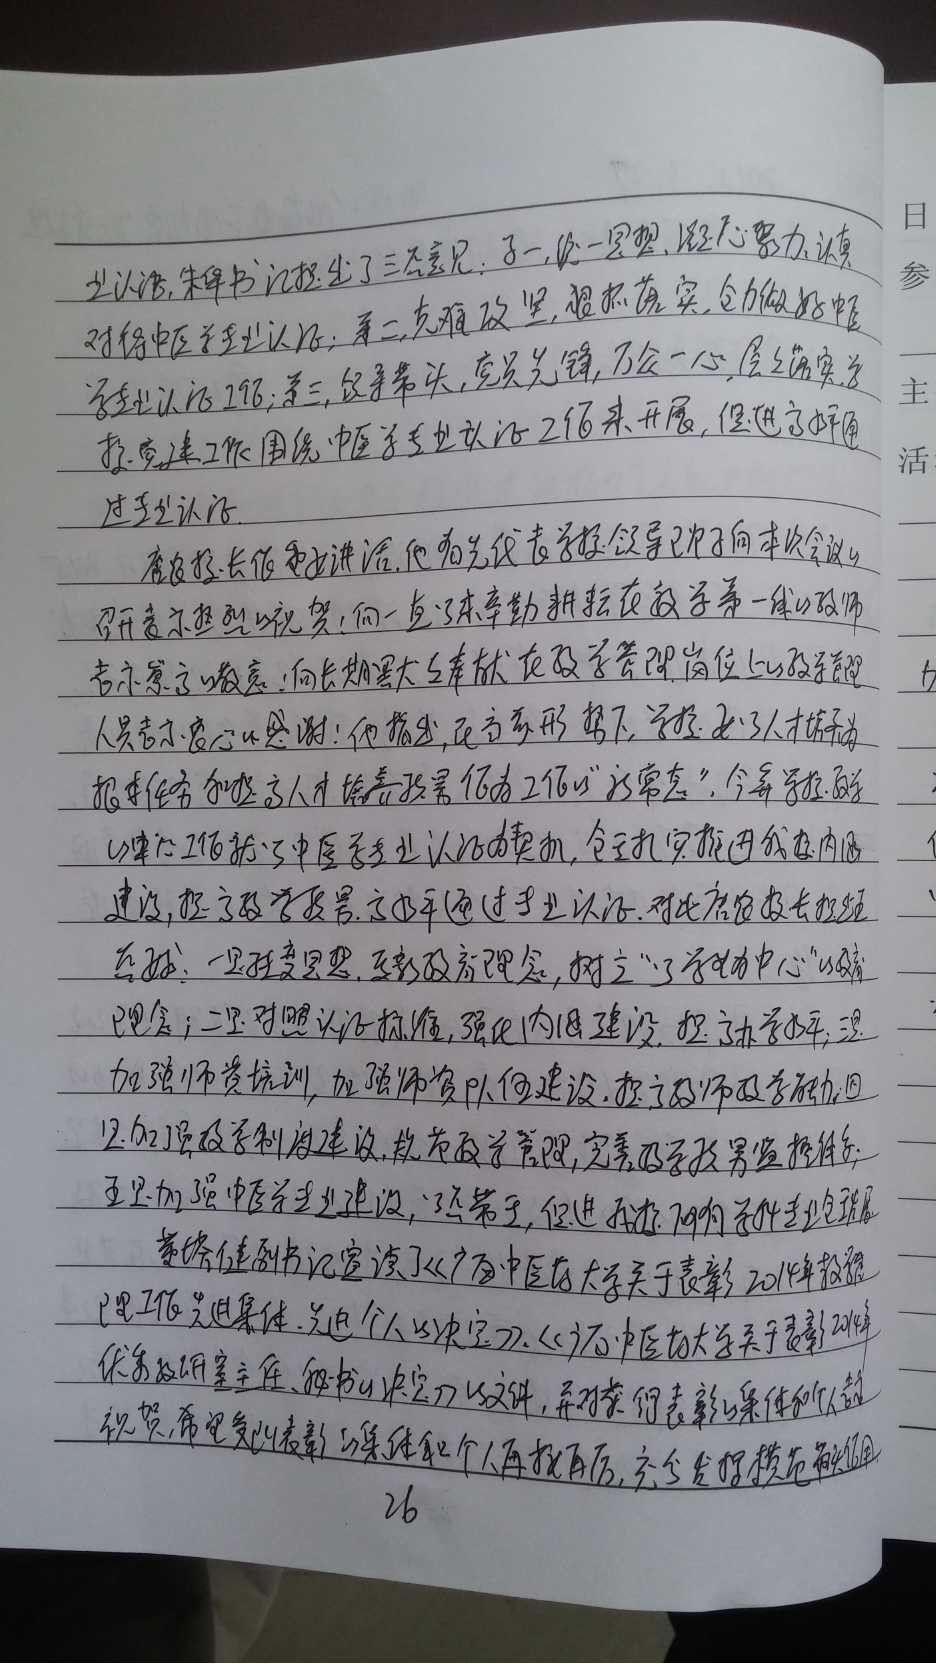 业认证,朱华书记提出了三点意见:第一,统一思想、凝心聚力、认真
对待中医学专业认证;第二,克难攻坚,狠抓落实,全力做好中医
学专业认证工作;第三,领导带头,党员先锋,万众一心,层层落实,学
校党建工作围绕中医学专业认证工作来开展,促进高水平通
过专业认证.
唐农校长作重要讲话.他首先代表学校领导班子向本次会议的
召开表示热烈的祝贺!向一直以来辛勤耕耘在教学第一线的教师
表示崇高的敬意!向长期默默奉献在教学管理岗位上的教学管理
人员表示衷心的感谢!他指出,在高教形势下,学校要以人才培养为
根本任务和提高人才培养质量作为工作的"新常态".今年学校教学
的中心工作就以中医学专业认证为契机,全面扎实推进我校内涵
建设,提高教学质量.高水平通过专业认证.对此唐农校长提出五
点要求:一是转变思想.更新教育理念,树立"以学生为中心"的教育
理念;二是对照认证标准,强化内涵建设.提高办学水平;三是
加强师资培训,加强师资队伍建设.提高教师教学能力;四
是加强教学制度建设.规范教学管理,完善教学质量监控体系;
五是加强中医学专业建设,以点带面,促进我校所有学科专业全面发展
黄岑汉副书记宣读了《广西中医药大学关于表彰2014年教学管
理工作先进集体、先进个人的决定》、《广西中医药大学关于表彰2014年
优秀教研室主任、秘书的决定》的文件,并对获得表彰的集体和个人表示
祝贺,希望受到表彰的集体和个人再接再厉,充分发挥模范带头作用
26
日
参
主
活